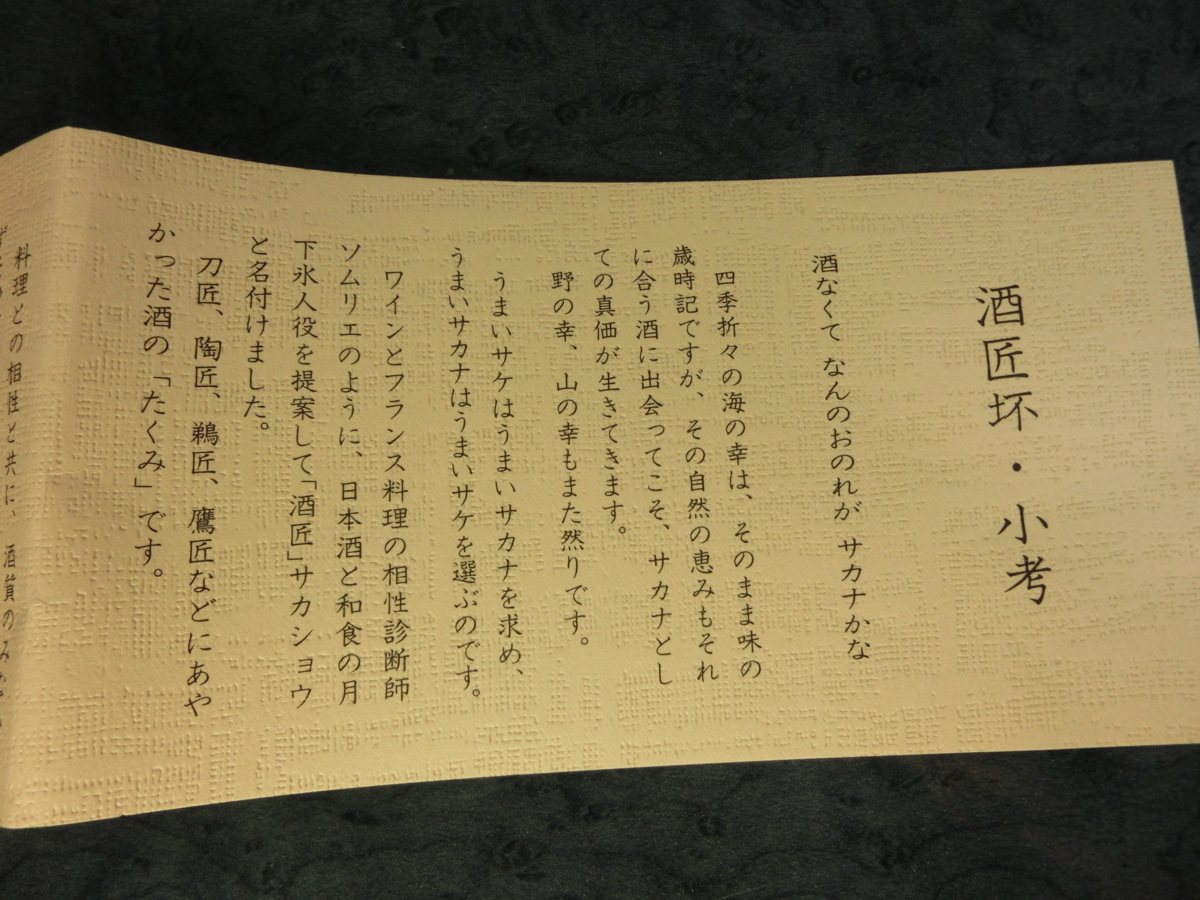 酒匠坏・小考
酒なくて なんのおのれが サカナかな
四季折々の海の幸は、そのまま味の
歳時記ですが、その自然の恵みもそれ
に合う酒に出会ってこそ、サカナとし
ての真価が生きてきます。
野の幸、山の幸もまた然りです。
うまいサケはうまいサカナを求め、
うまいサカナはうまいサケを選ぶのです。
ワインとフランス料理の相性診断師
ソムリエのように、日本酒と和食の月
下氷人役を提案して「酒匠」サカショウ
と名付けました。
刀匠、陶匠、鵜匠、鷹匠などにあや
かった酒の「たくみ」です。
料理との相性と共に、酒質のみ